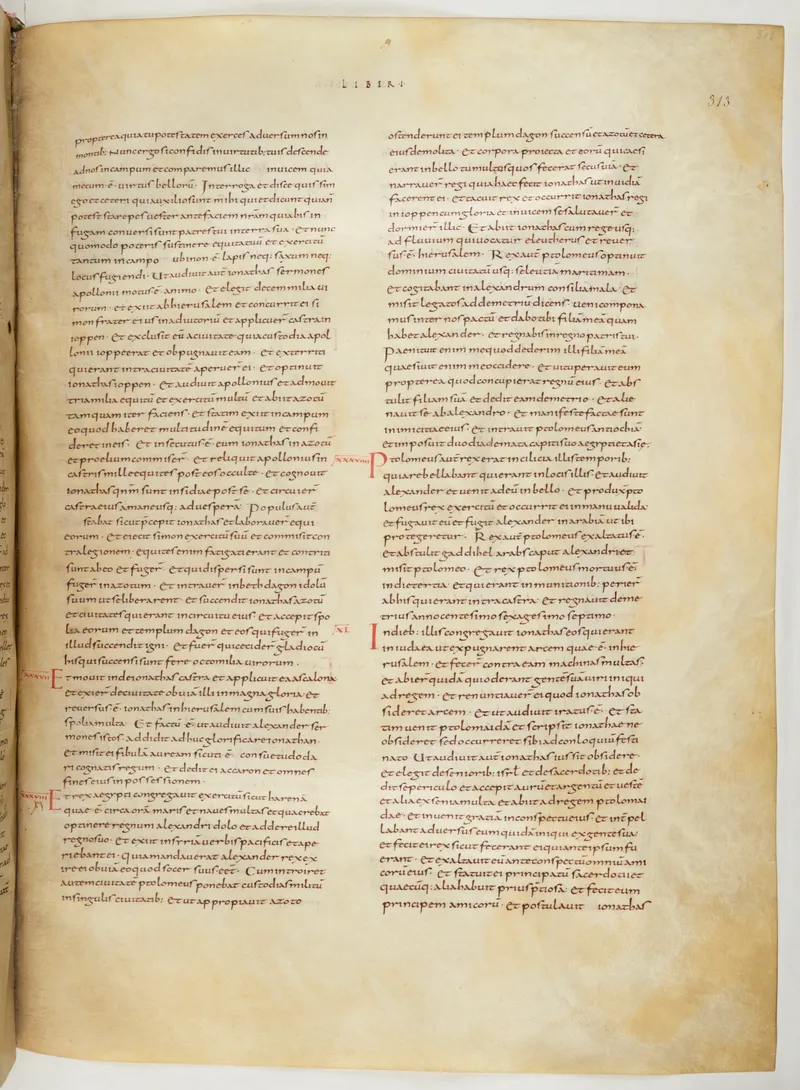 LIBER I
313
propterea quia tu potestatem exerces aduersum nos in
montib; Nunc ergo si confidis in uirtutib; tuis descende
ad nos in campum et comparemus illic inuicem quia
mecum .ē. uirtus bellorū. Interroga et disce quis sim
ego et ceteri qui auxilio sunt mihi qui et dicunt quia n̄
potest stare pes uester ante faciem nr̄am quia bis in
fugam conuersi sunt patres tui in terra sua. Et nunc
quomodo poteris sustinere equitatū et exercitū
tantum in campo ubi non .ē. lapis neq; saxum neq;
locus fugiendi. Ut audiuit aut̄ ionathas sermones
apollonii motus .ē. animo. Et elegit decem milia ui
rorum. et exiit ab hierusalem et concurrit ei si
mon frater eius in adiutoriū et applicuer̄ castra in
ioppen. Et exclusit eū a ciuitate quia custodia apol
lonii ioppe erat et obpugnauit eam. Et exterriti
qui erant intra ciuitatē aperuer̄ ei. et optinuit
ionathas ioppen. Et audiuit apollonius et admouit
tria milia equitū et exercitū multū et abiit azotū
tamquam iter faciens. et statim exiit in campum
eo quod haberet multitudinē equitum et confi
deret in eis. Et insecutus .ē. eum ionathas in azotū
et proelium commiser̄. Et reliquit apollonius in
castris mille equites post eos occulte. Et cognouit
ionathas qnm̄ sunt insidiae post se. et circuier̄
castra eius a mane usq; ad uesperā. Populus aut̄
stabat sicut p̄cepit ionathas et laborauer̄ equi
eorum. Et eiecit simon exercitū suū et commisit con
tra legionem. equites enim fatigati erant et contriti
sunt ab eo et fuger̄. Et qui dispersi sunt in campū
fuger̄ in azotum. Et intrauer̄ in bethdagon idolū
suum ut se liberarent. Et succendit ionathas azotū
et ciuitates qui erant in circuitu eius. et accepit spo
lia eorum et templum dagon et eos qui fuger̄ in
illud succendit igni. Et fuer̄ qui cecider̄ gladio cū
his qui succensi sunt fere octo milia uirorum.
Et mouit inde ionathas castra et applicuit ea ascalonē
et exier̄ de ciuitate obuiā illi in magna gloria. et
reuersus .ē. ionathas in hierusalem cum suis habentib;
spolia multa. Et factū .ē. ut audiuit alexander ser̄
mones istos addidit adhuc glorificare ionathan.
et misit ei fibulā auream sicuti .ē. consuetudo da
ri cognatis regum. Et dedit ei accaron et omnes
fines eius in possessionem.
XXXVIII Et rex aegypti congregauit exercitū sicut harena
quae .ē. circa orā maris et naues multas et quaerebat
optinere regnum alexandri dolo et addere illud
regno suo. Et exiit in syriā uerbis pacificis et ape
riebant ei. Quia mandauerat alexander rex ex
ire ei obuiā eo quod socer suus eēt. Cum introiret
autem ciuitatē ptolomeus ponebat custodias militū
in singulis ciuitatib; Et ut appropiauit azoto
ostenderunt ei templum dagon succensū et azotū et cetera
eius demolita. Et corpora proiecta et eorū qui caesi
erant in bello tumulos quos fecerat secus uiā. et
narrauer̄ regi quia haec fecit ionathas ut inuidiā
facerent ei. et tacuit rex et occurrit ionathas regi
in ioppen cum gloria et inuicem se salutauer̄ et
dormier̄ illic. Et abiit ionathas cum rege usq;
ad fluuium qui uocatur eleutherus et reuer
sus .ē. hierusalem. Rex aut̄ ptolomeus optinuit
dominium ciuitatū usq; seleuciā maritimam.
et cogitabat in alexandrum consilia mala. et
misit legatos ad demetriū dicens. ueni compona
mus inter nos pactū et dabo tibi filiā meā quam
habet alexander. et regnabis in regno patris tui.
Paenitet enim me quod dederim illi filiā meā
quaesiuit enim me occidere. et uituperauit eum
propterea quod concupierat regnū eius. et abs
tulit filiam suā et dedit eam demetrio. et alie
nauit se ab alexandro. et manifestae factae sunt
inimicitiae eius. et intrauit ptolomeus antiochiā
et imposuit duo diademata capiti suo aegypti et asiae;
XXXVIIII Ptolomeus aut̄ rex erat in cilicia illis temporib;
quia rebellabant qui erant in locis illis. et audiuit
alexander et uenit ad eū in bello. Et produxit pto
lomeus rex exercitū et occurrit ei in manu ualida
et fugauit eū et fugit alexander in arabiā ut ibi
protegeretur. Rex aut̄ ptolomeus exaltatus .ē.
et abstulit gaddihel arabs caput alexandri et
misit ptolomeo. Et rex ptolomeus mortuus .ē.
in die tertia. et qui erant in munitionib; perier̄
ab his qui erant intra castra. et regnauit deme
trius anno centesimo sexagesimo septimo
XL In dieb; illis congregauit ionathas eos qui erant
in iudaea ut expugnarent arcem quae .ē. in hie
rusalem. et fecer̄ contra eam machinas multas.
et abier̄ quidā qui oderant gentē suā uiri iniqui
ad regem. et renuntiauer̄ ei quod ionathas ob
sideret arcem. Et ut audiuit iratus .ē. et sta
tim uenit ptolomaidā et scripsit ionathae ne
obsideret sed occurreret sibi ad conloquiū festi
nato. Ut audiuit aut̄ ionathas iussit obsidere.
et elegit de seniorib; isrl̄ et de sacerdotib; et de
dit se periculo et accepit aurū et argentū et uestē
et alia exenia multa et abiit ad regem ptolomai
dae. et inuenit gratiā in conspectu eius. et int̄pel
labant aduersus eum quidā iniqui ex gente sua.
et fecit ei rex sicut fecerant ei qui ante ipsum fu
erant. et exaltauit eū ante conspectū omniū ami
corū eius. et statuit ei principatū sacerdotii et
quaecūq; alia habuit prius p̄tiosa. et fecit eum
principem amicorū. Et postulauit ionathas